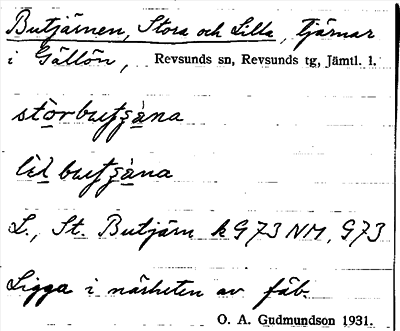 Butjärnen, Stora och Lilla, tjärnar
i Gällön, Revsunds sn, Revsunds tg, Jämtl. l.
L., St. Butjärn k G73 NM, G73
Ligga i närheten av fäb.
O. A. Gudmundson 1931.